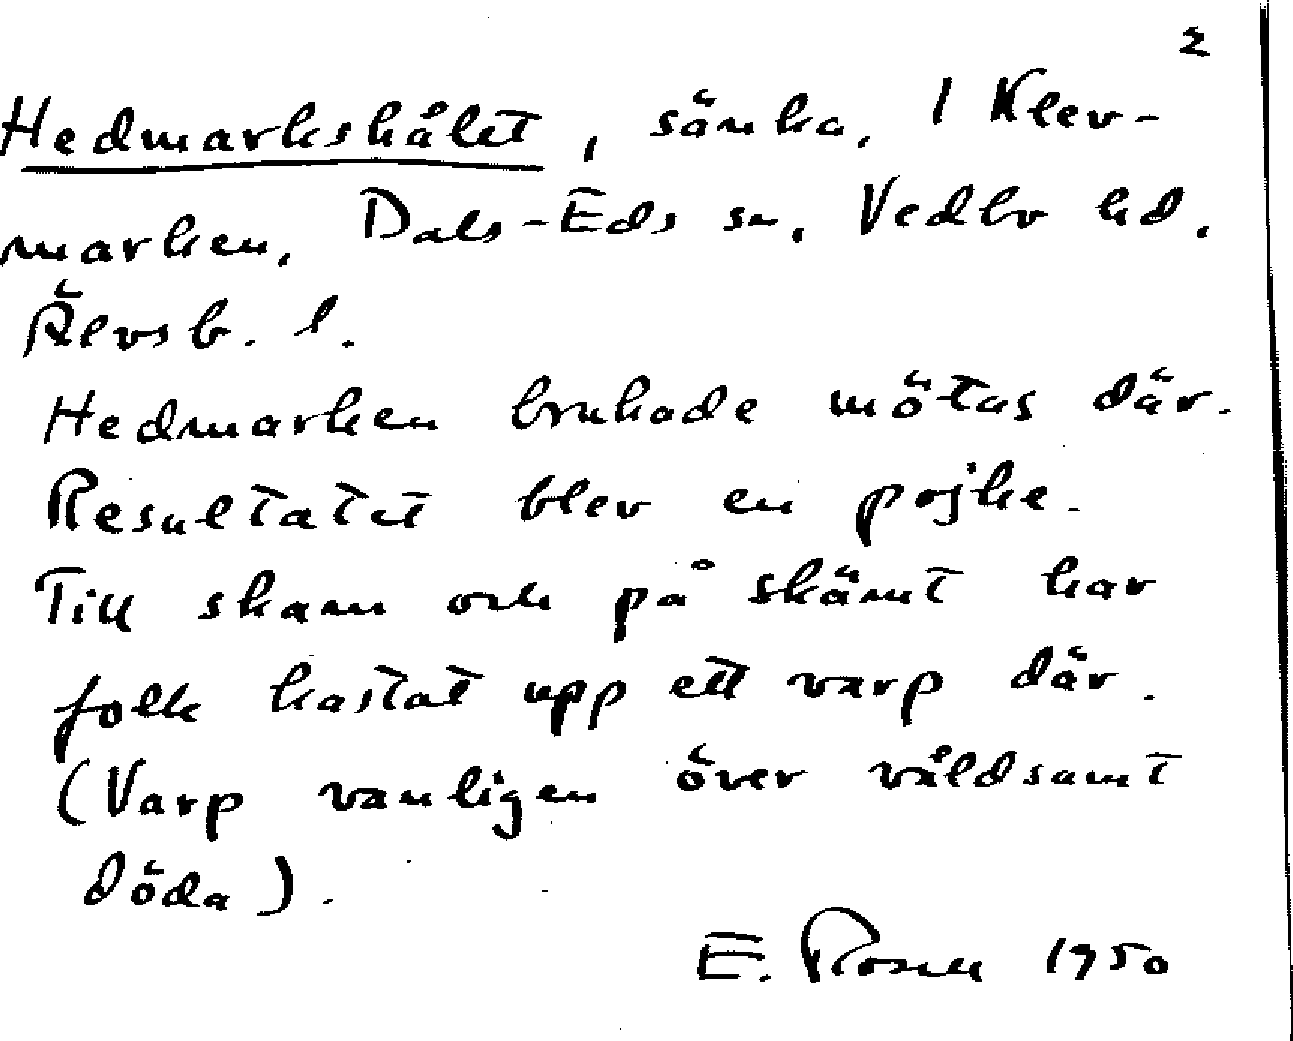 2
Hedmarkshålet, sänka, I Klev-
marken, Dals-Eds sn, Vedbo hd.
Älvsb. l.
Hedmarken brukade mötas där.
Resultatet blev en pojke.
Till skam och på skämt har
folk kastat upp ett varp där.
(Varp vanligen över våldsamt
döda).
E. 1950